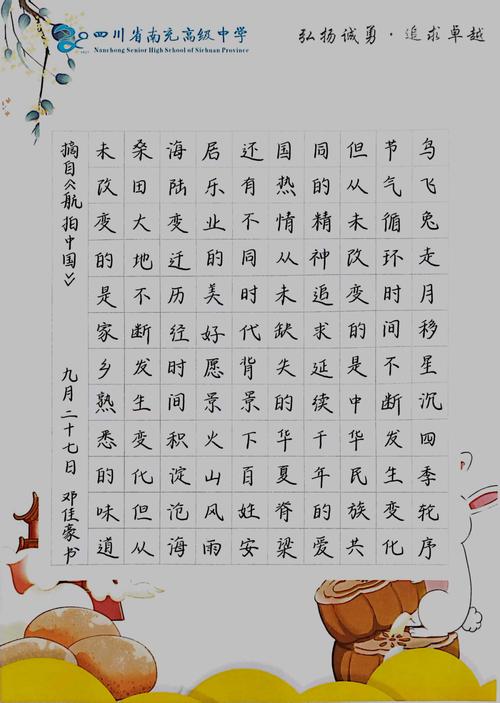 四川省南充高级中学
Nanchong Senior High School of Sichuan Province
弘扬诚勇·追求卓越
鸟飞兔走月移星沉四季轮序
节气循环时间不断发生变化
但从未改变的是中华民族共
同的精神追求延续千年的爱
国热情从未缺失的华夏脊梁
还有不同时代背景下百姓安
居乐业的美好愿景火山风雨
海陆变迁历经时间积淀沧海
桑田大地不断发生变化但从
未改变的是家乡熟悉的味道
摘自《航拍中国》 九月二十七日 邓佳豪书